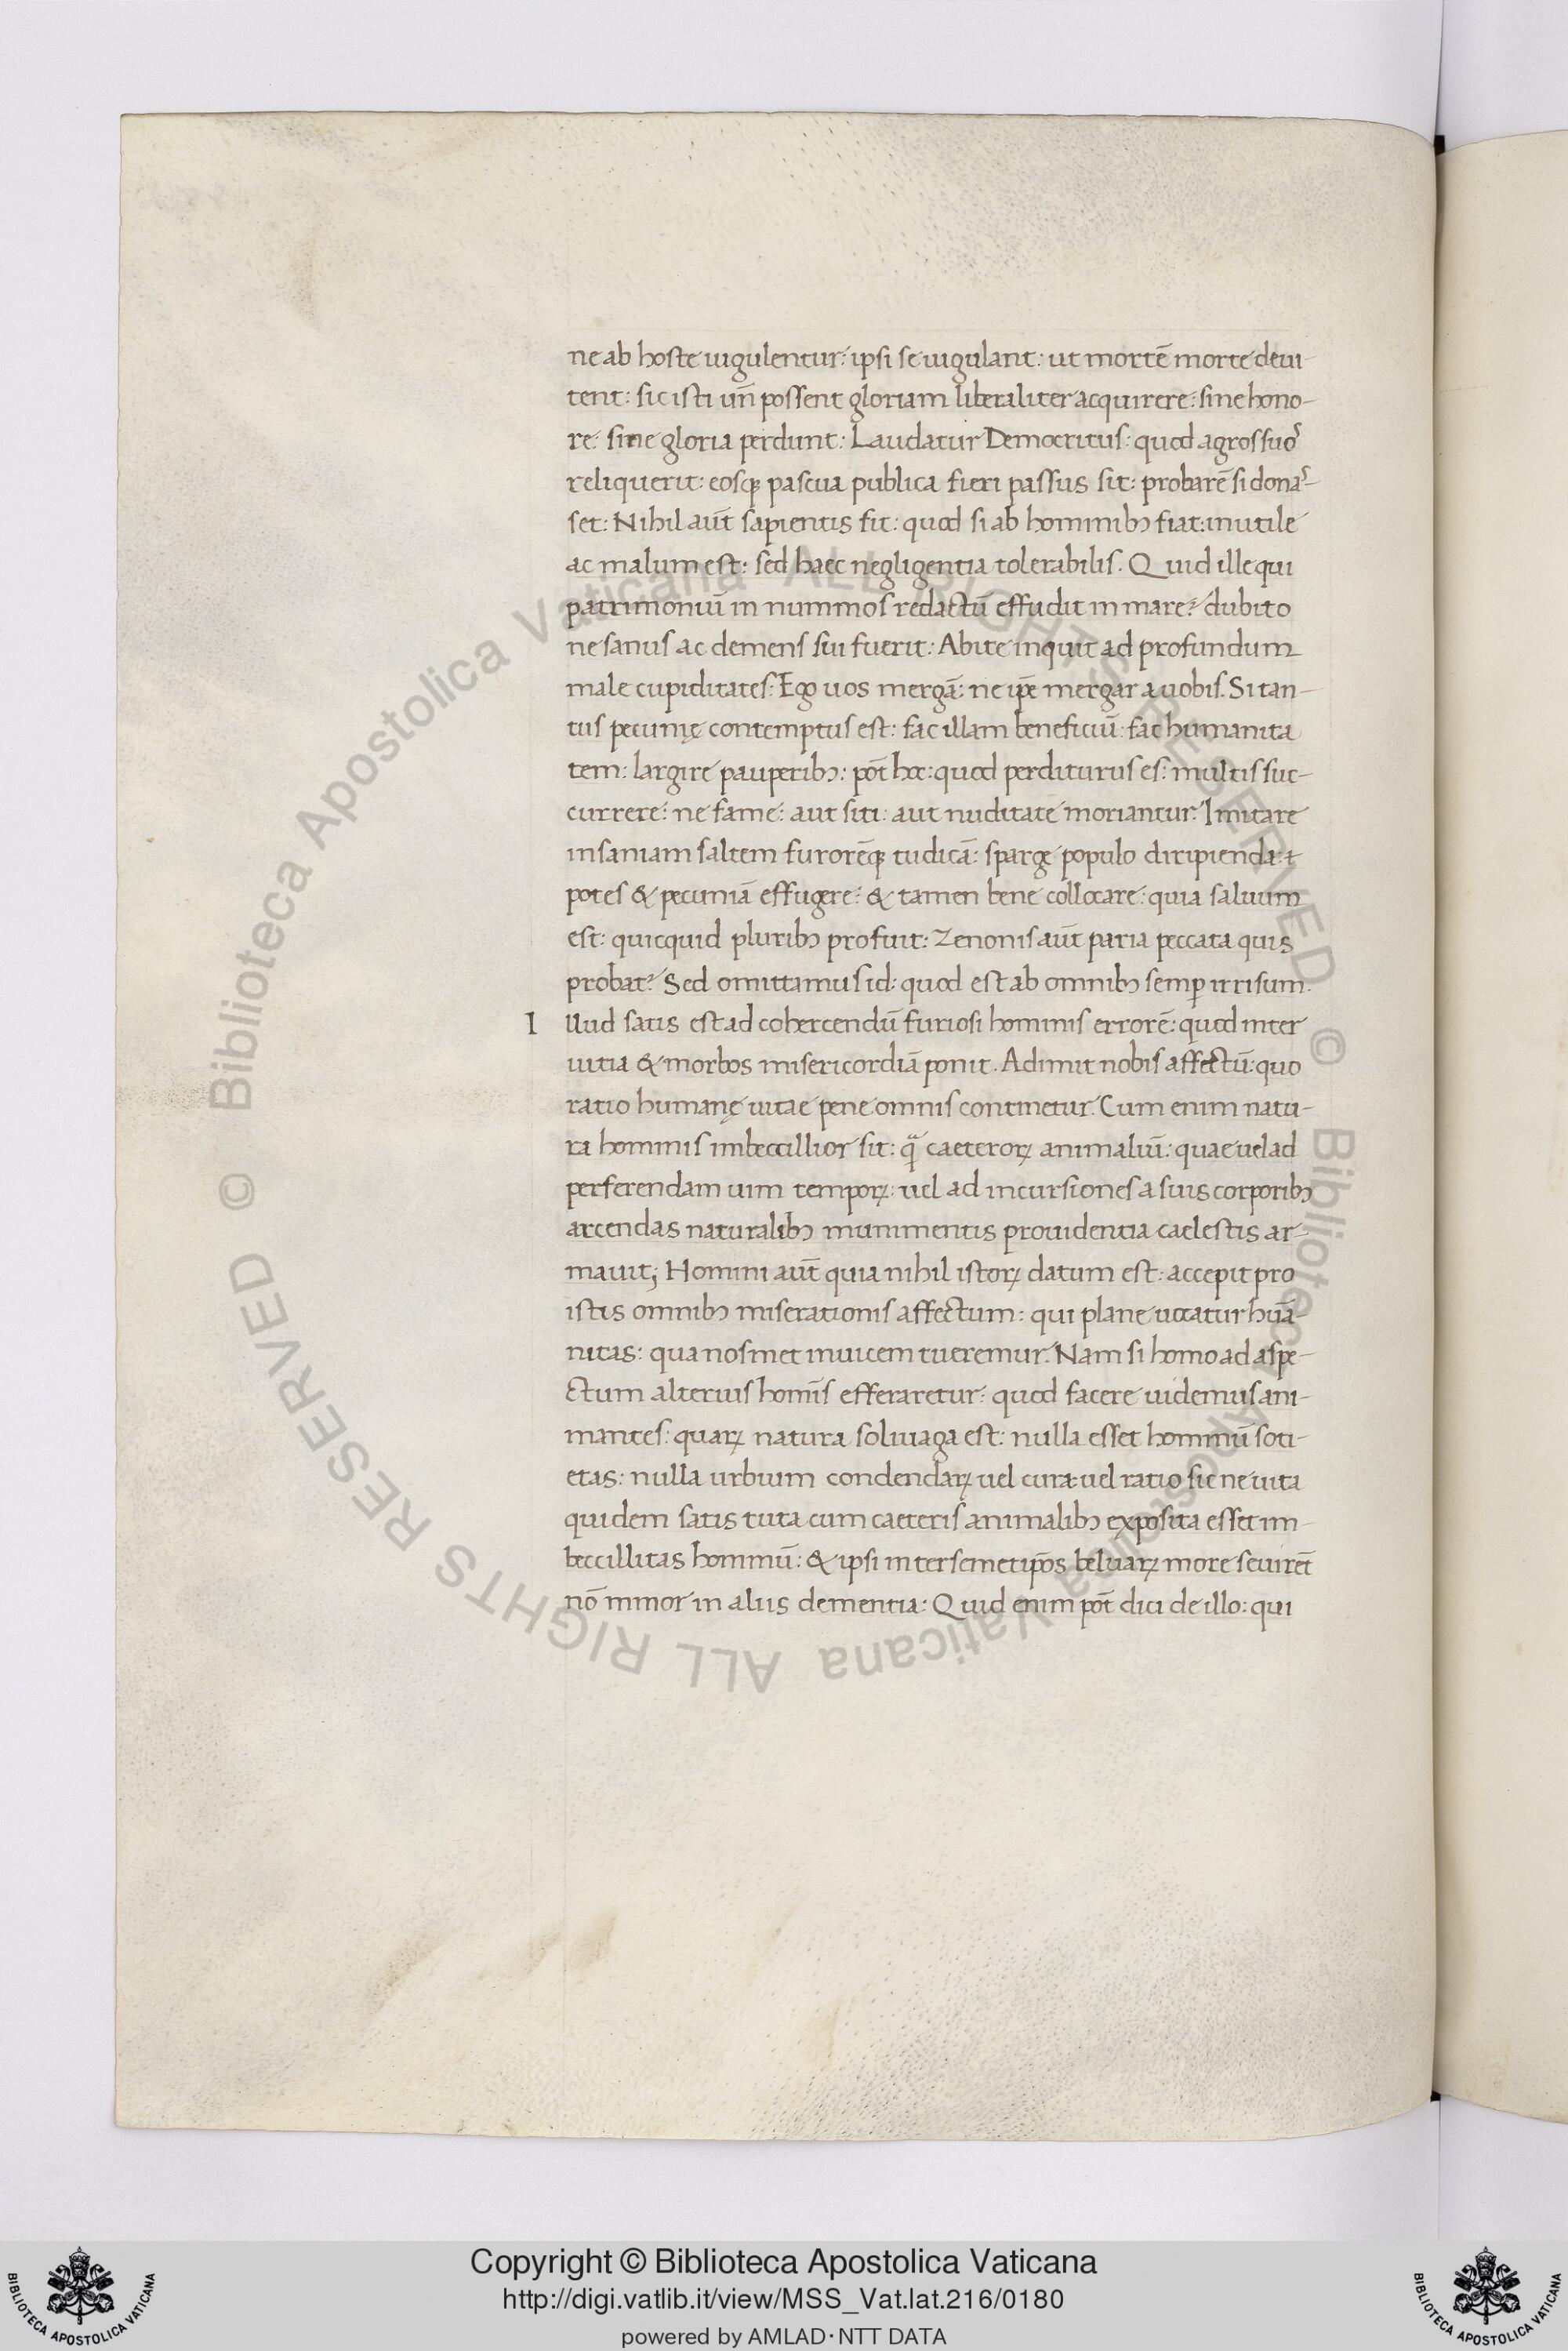 ne ab hoste iugulentur: ipsi se iugulant: ut mortē morte deui
tent: sic isti un̄ possent gloriam liberaliter acquirere: sine hono-
re: sine gloria perdunt: Laudatur Democritus: quod agros suoˢ
reliquerit: eosqꝫ pascua publica fieri passus sit: probarē si donaˢ-
set: Nihil aūt sapientis fit: quod si ab hominibꝫ fiat: inutile
ac malum est: sed haec negligentia tolerabilis. Quid ille qui
patrimoniū in nummos redactū effudit in mare? dubito
ne sanus ac demens sui fuerit: Abite inquit ad profundum
male cupiditates: Ego uos mergā: ne ip̄e mergar a uobis. Si tan-
tus pecunię contemptus est: fac illam beneficiū: fac humanita
tem: largire pauperibꝫ: pōt hoc: quod perditurus es: multis suc-
currere: ne fame: aut siti: aut nuditate moriantur. Imitare
insaniam saltem furorēqꝫ tudicā: sparge populo diripienda: &
potes & pecuniā effugere: & tamen bene collocare: quia saluum
est: quicquid pluribꝫ profuit: Zenonis aūt paria peccata quis
probat? Sed omittamus id: quod est ab omnibꝫ semꝑ irrisum.
Illud satis est ad cohercendū furiosi hominis errorē: quod inter
uitia & morbos misericordiā ponit. Adimit nobis affectū: quo
ratio humanę uitae pene omnis continetur. Cum enim natu-
ra hominis imbeccillior sit: qᷓ caeteroꝝ animaliū: quae uel ad
perferendam uim tempoꝝ: uel ad incursiones a suis corporibꝫ
arcendas naturalibꝫ munimentis prouidentia caelestis ar-
mauit; Homini aūt quia nihil istoꝝ datum est: accepit pro
istis omnibꝫ miserationis affectum: qui plane uocatur hūa-
nitas: qua nosmet inuicem tueremur. Nam si homo ad aspe-
ctum alterius homīs efferaretur: quod facere uidemus ani-
mantes: quaꝝ natura soliuaga est: nulla esset hominū soti-
etas: nulla urbium condendaꝝ uel cura: uel ratio sic ne uita
quidem satis tuta cum caeteris animalibꝫ exposita esset im-
beccillitas hominū: & ipsi inter semetip̄os beluaꝝ more seuirēt
nō minor in aliis dementia: Quid enim pōt dici de illo: qui
Copyright © Biblioteca Apostolica Vaticana
http://digi.vatlib.it/view/MSS_Vat.lat.216/0180
powered by AMLAD·NTT DATA
BIBLIOTECA APOSTOLICA VATICANA
BIBLIOTECA APOSTOLICA VATICANA
© Biblioteca Apostolica Vaticana ALL RIGHTS RESERVED
© Biblioteca Apostolica Vaticana ALL RIGHTS RESERVED